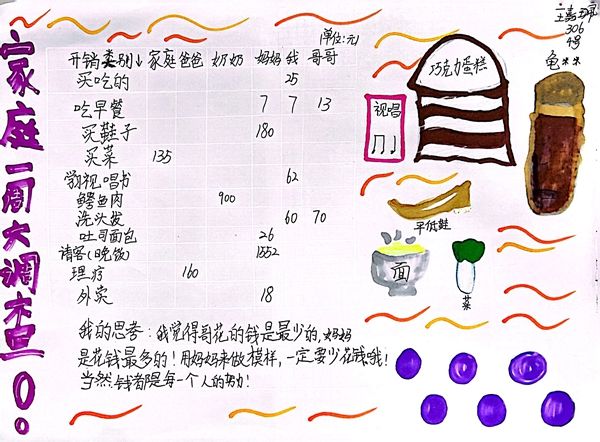 家庭一周大调查
(单位:元)
开销类别↓ 家庭 爸爸 奶奶 妈妈 我 哥哥
买吃的 25
吃早餐 7 7 13
买鞋子 180
买菜 135
买视唱书 62
鳄鱼肉 900
洗头发 60 70
吐司面包 26
请客(晚饭) 1552
理疗 160
外卖 18
我的思考:我觉得哥花的钱是最少的,妈妈
是花钱最多的!用妈妈来做模样,一定要少花钱哦!
当然,钱都是每一个人的努力!
巧克力蛋糕
视唱
306
4号
面
菜